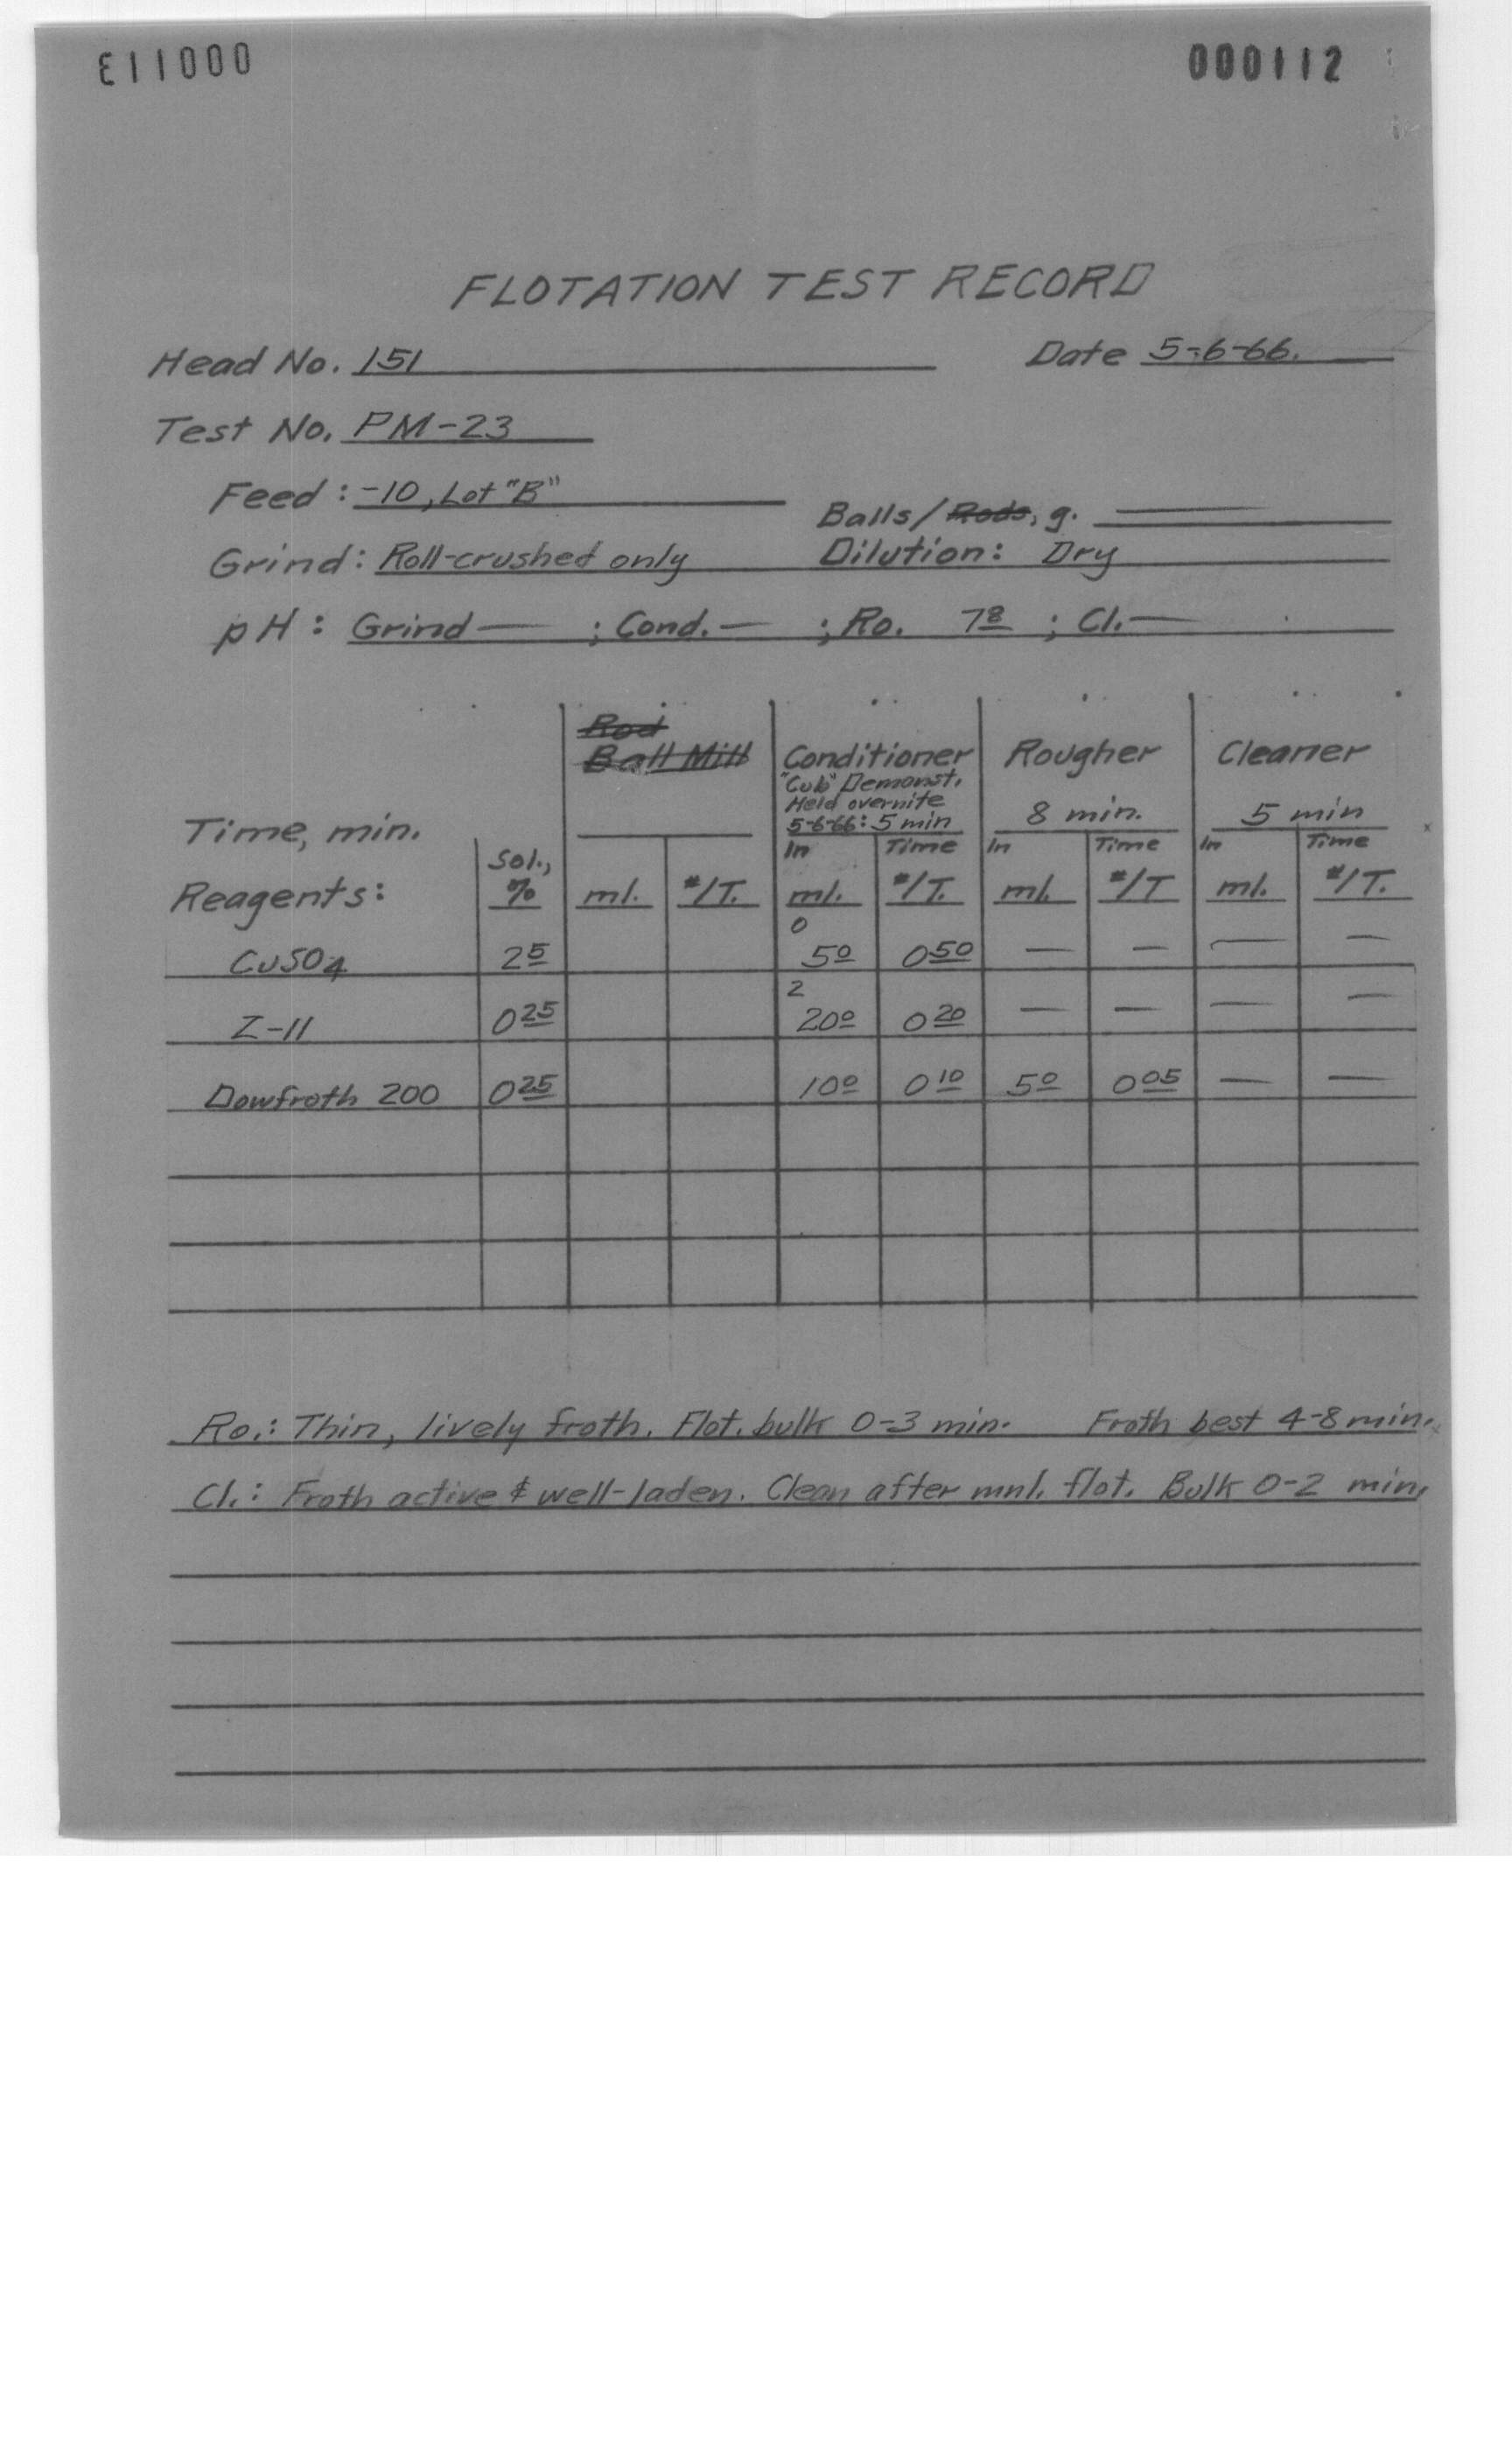 E11000 000112
FLOTATION TEST RECORD
Head No. 151 Date 5-6-66.
Test No. PM-23
Feed: -10, Lot "B"
Balls/Rods, g. —
Grind: Roll-crushed only Dilution: Dry
pH: Grind — ; Cond. — ; Ro. 7 8 ; Cl. —
Rod
Ball Mill Conditioner Rougher Cleaner
"Cub" Demonst.
Held overnite
Time, min. 5-6-66: 5 min 8 min. 5 min
In Time In Time In Time
Reagents: Sol., % ml. #/T. ml. #/T. ml. #/T ml. #/T.
0
CuSO4 2 5 5 0 0 50 — — — —
2
Z-11 0 25 20 0 0 20 — — — —
Dowfroth 200 0 25 10 0 0 10 5 0 0 05 — —
Ro.: Thin, lively froth. Flot. bulk 0-3 min. Froth best 4-8 min.
Cl.: Froth active & well-laden. Clean after mnl. flot. Bulk 0-2 min.